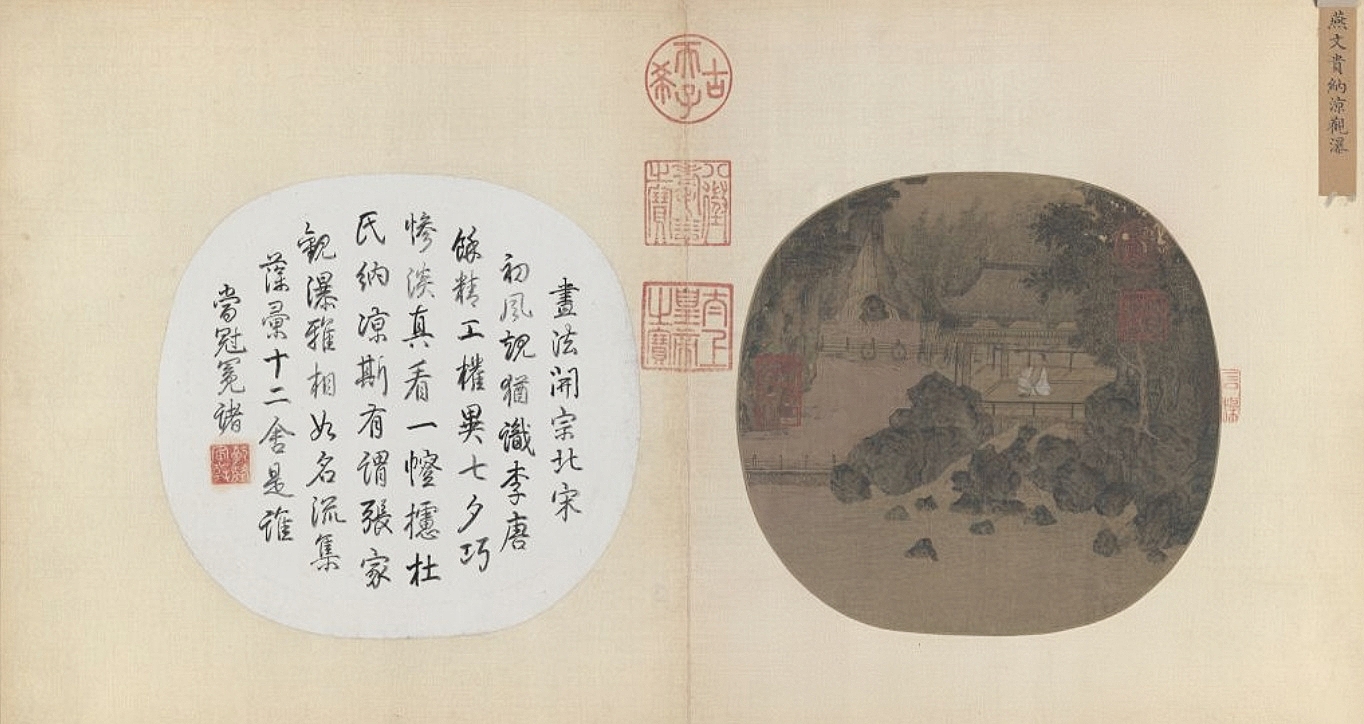 燕文貴納涼觀瀑
古希天子
八徵耄念之寶
太上皇帝之寶
畫法開宗北宋
初風規猶識李唐
餘精工權異七夕巧
慘淡真看一㡧攄杜
氏納凉斯有謂張家
觀瀑雅相如名流集
藻彙十二舍是誰
當冠冕諸